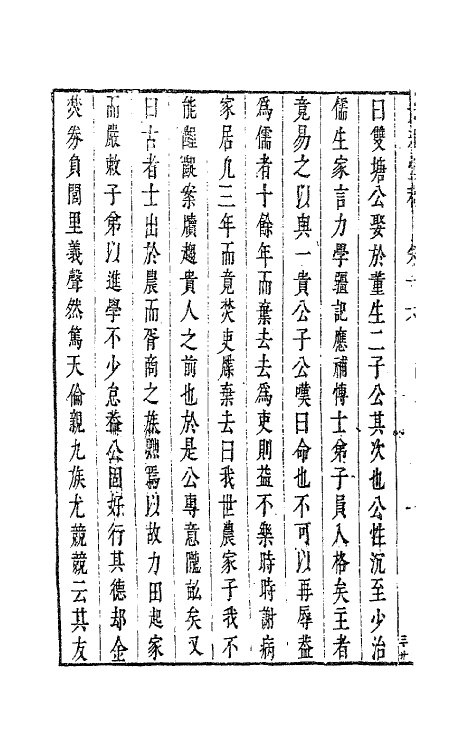 曰雙塘公娶於董生二子公其次也公性沉至少治
儒生家言力學彊記應補博士弟子員入格矣主者
竟易之以與一貴公子公嘆曰命也不可以再辱葢
為儒者十餘年而棄去去為吏則益不樂時時謝病
家居凡三年而竟焚吏牒棄去曰我世農家子我不
能齷齪案牘趨貴人之前也於是公專意隴畝矣又
曰古者士出於農而胥商之族點焉以故力田起家
而嚴敕子弟以進學不少怠葢公固好行其德却金
焚券負閭里義聲然篤天倫親九族尤競競云其友